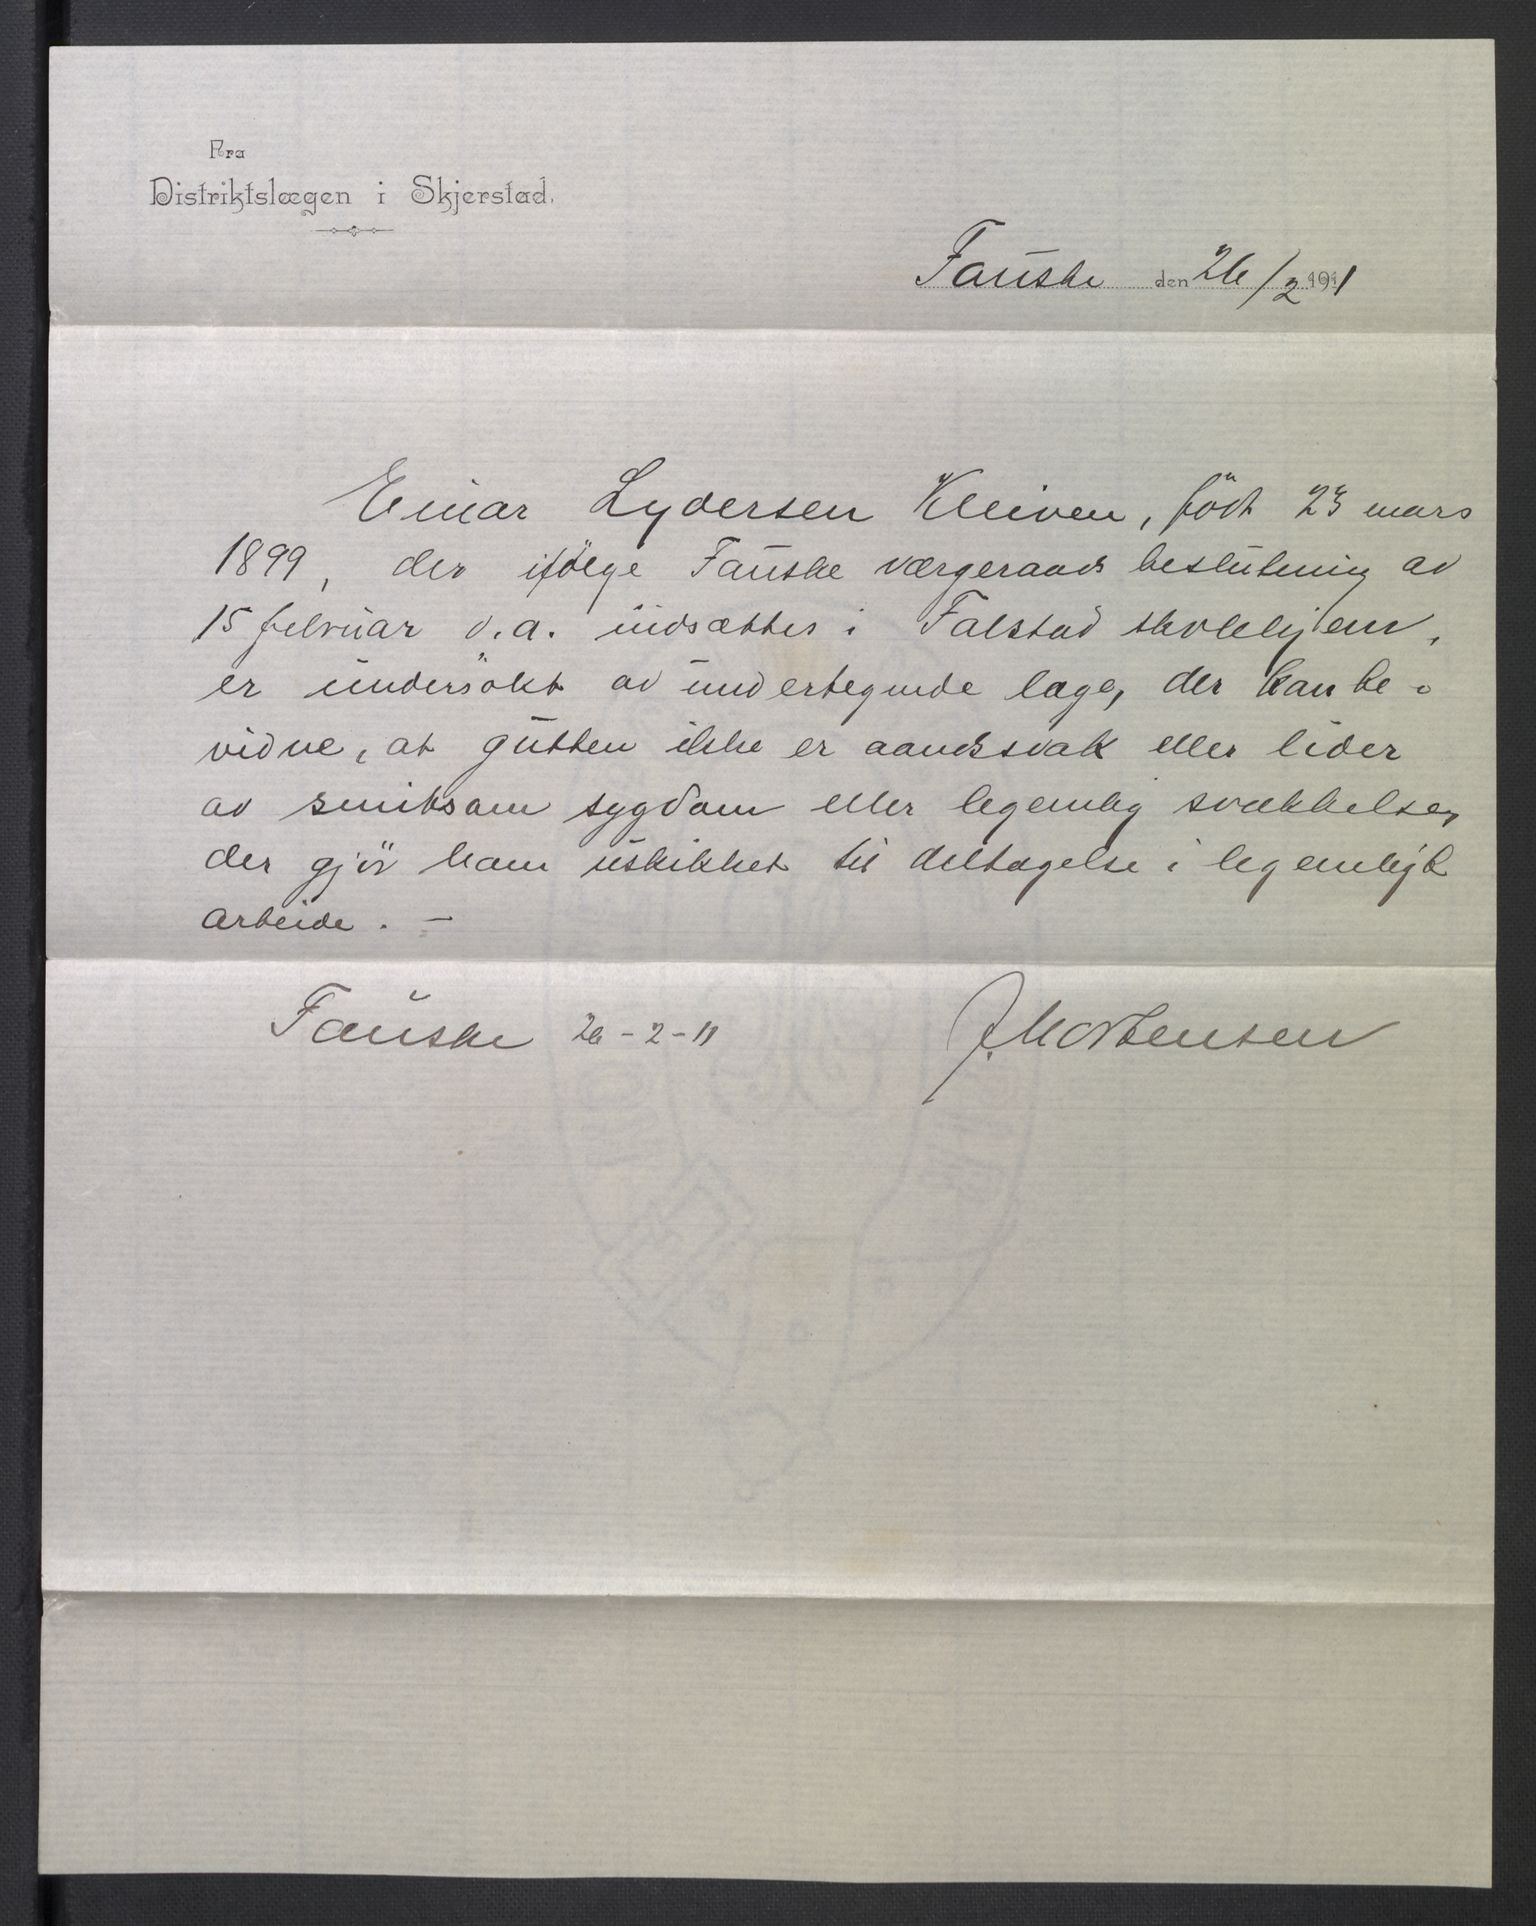 Fra
Distriktslægen i Skjerstad.
Fauske den 26/2 1911
Einar Lydersen Kleiven, född 23 mars
1899, der ifölge Fauske værgeraads beslutning av
15 februar d.a. indsættes i Falstad skolehjem,
er undersökt av undertegnede læge, der kan be-
vidne, at gutten ikke er aandssvak eller lider
av smitsom sygdom eller legemlig svækkelse,
der gjör ham uskikket til deltagelse i legemligt
arbeide. –
Fauske 26-2-11 J. Mortensen